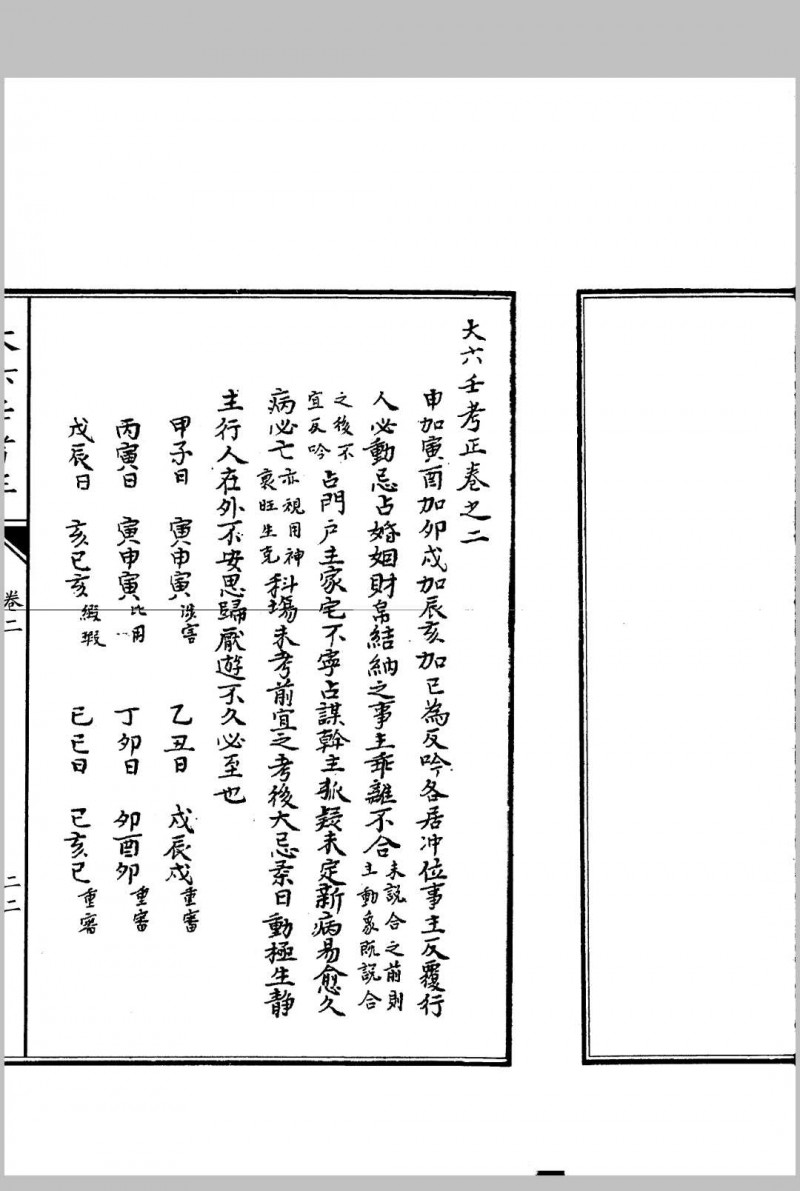 大六壬考正卷之二
申加寅酉加卯戌加辰亥加巳為反吟各居冲位事主反覆行
人必動忌占婚姻財帛結納之事主乖離不合未説合之前則主動象既説合
之後不宜反吟占門户主家宅不寧占謀幹主狐疑未定新病易愈久
病必亡亦視用神衰旺生克科塲未考前宜之考後大忌系曰動極生静
主行人在外不安思歸厭遊不久必至也
甲子日 寅申寅涉害 乙丑日 戌辰戌重審
丙寅日 寅申寅比用 丁卯日 卯酉卯重審
戊辰日 亥巳亥綴瑕 己巳日 巳亥巳重審
卷二
二二